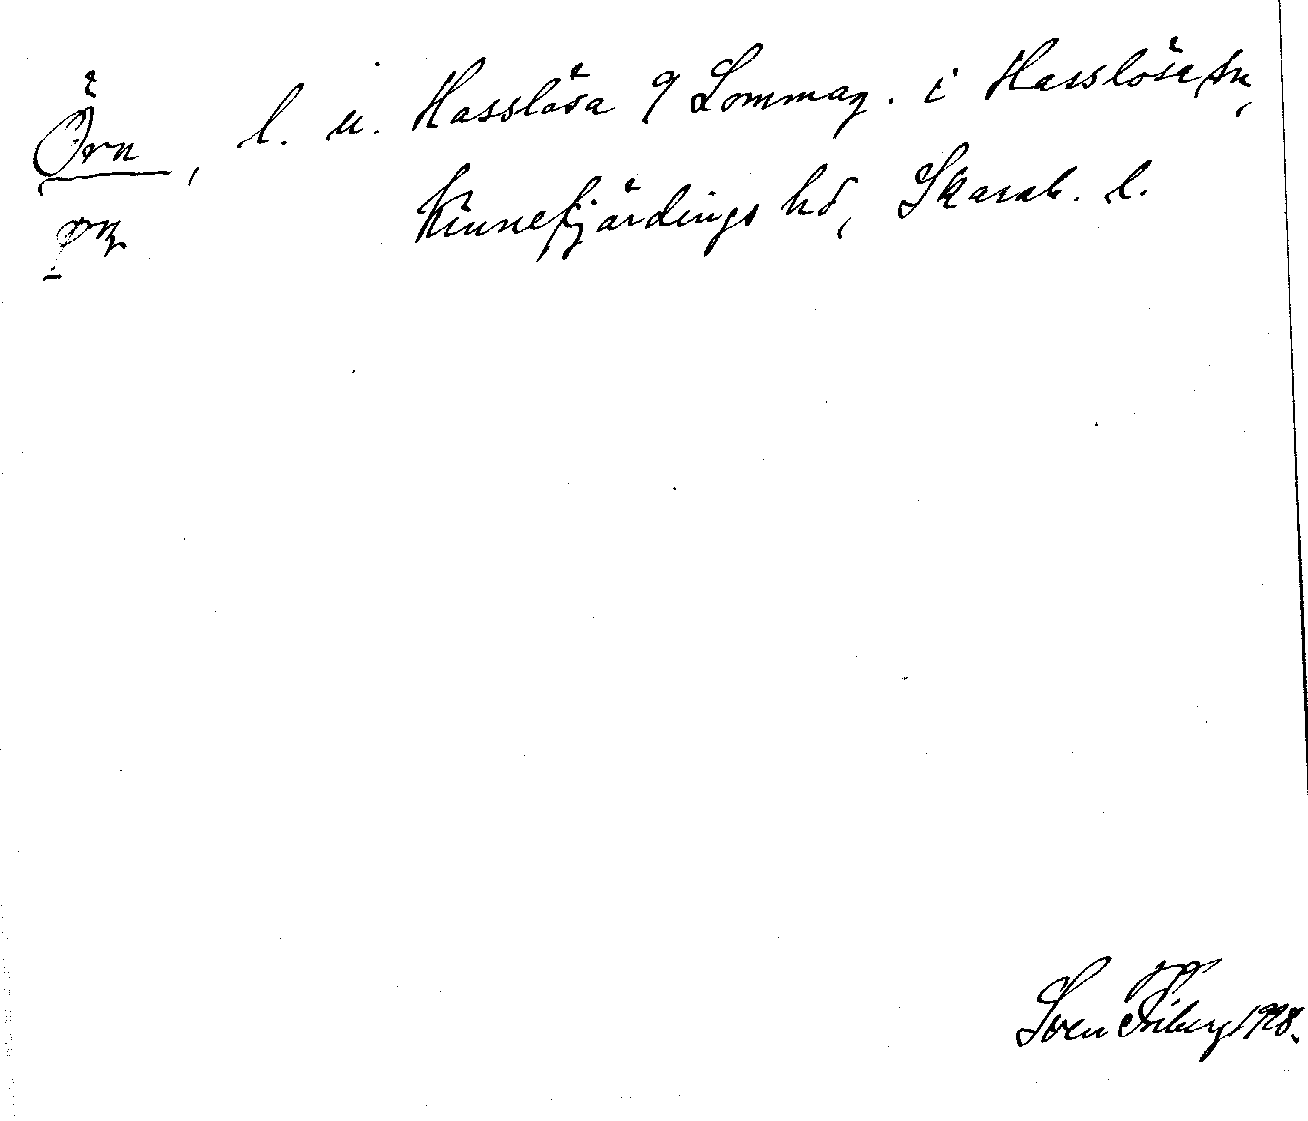 Örn, l. u. Hasslösa 9 Sommag. i Hasslösa sn,
Kinnefjärdings hd, Skarab. l.
Sven Friberg 1928.